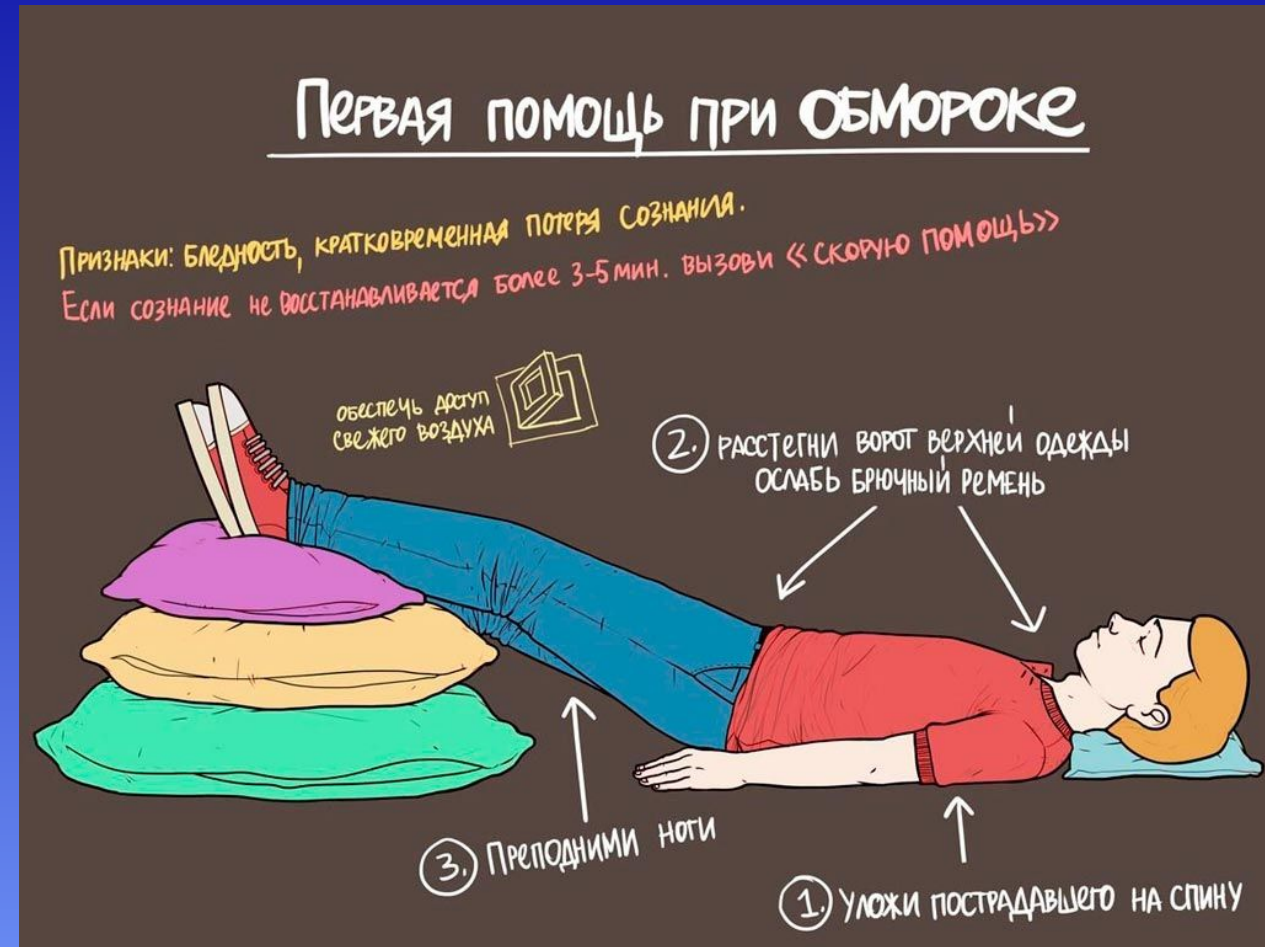 Первая помощь при ОБМОРОКЕ
Признаки: бледность, кратковременная потеря сознания.
Если сознание не восстанавливается более 3-5 мин. вызови «скорую помощь»
обеспечь доступ
свежего воздуха
2. Расстегни ворот верхней одежды
ослабь брючный ремень
3. Преподними ноги
1. Уложи пострадавшего на спину